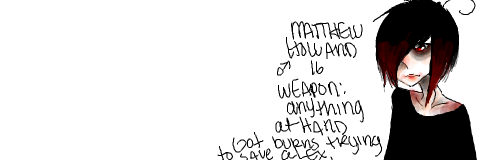 MATTHEW
HOWLAND
♂ 16
WEAPON:
anything
at HAND
Got burns trying
to save alex.